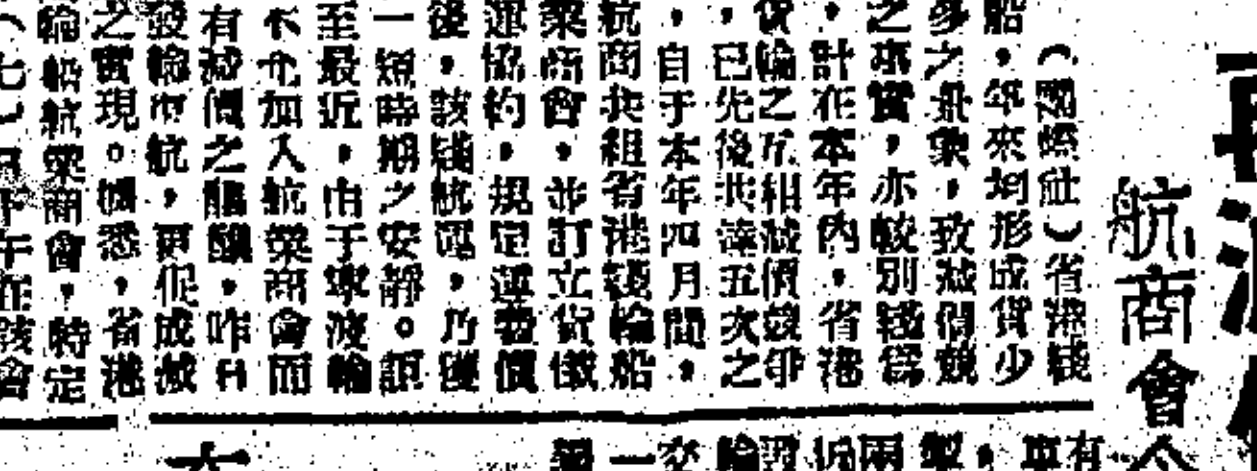 航商會
社)省港綫
船,年來均形成貨少
多之現象,致減價競
之事實,亦較別綫爲
,計在本年內,省港
貨輪之互相減價競爭
,已先後共達五次之
,自于本年四月間,
航商共組省港綫輪船
業商會,並訂立貨儎
運協約,規定運費價
後,該綫航運,乃獲
一短時期之安靜。詎
至最近,由于寧波輪
不允加入航業商會而
有減價之醞釀,昨日
發輪市航,更促成減
之實現。據悉,省港
輪船航業商會,特定
(七)日下午在該會